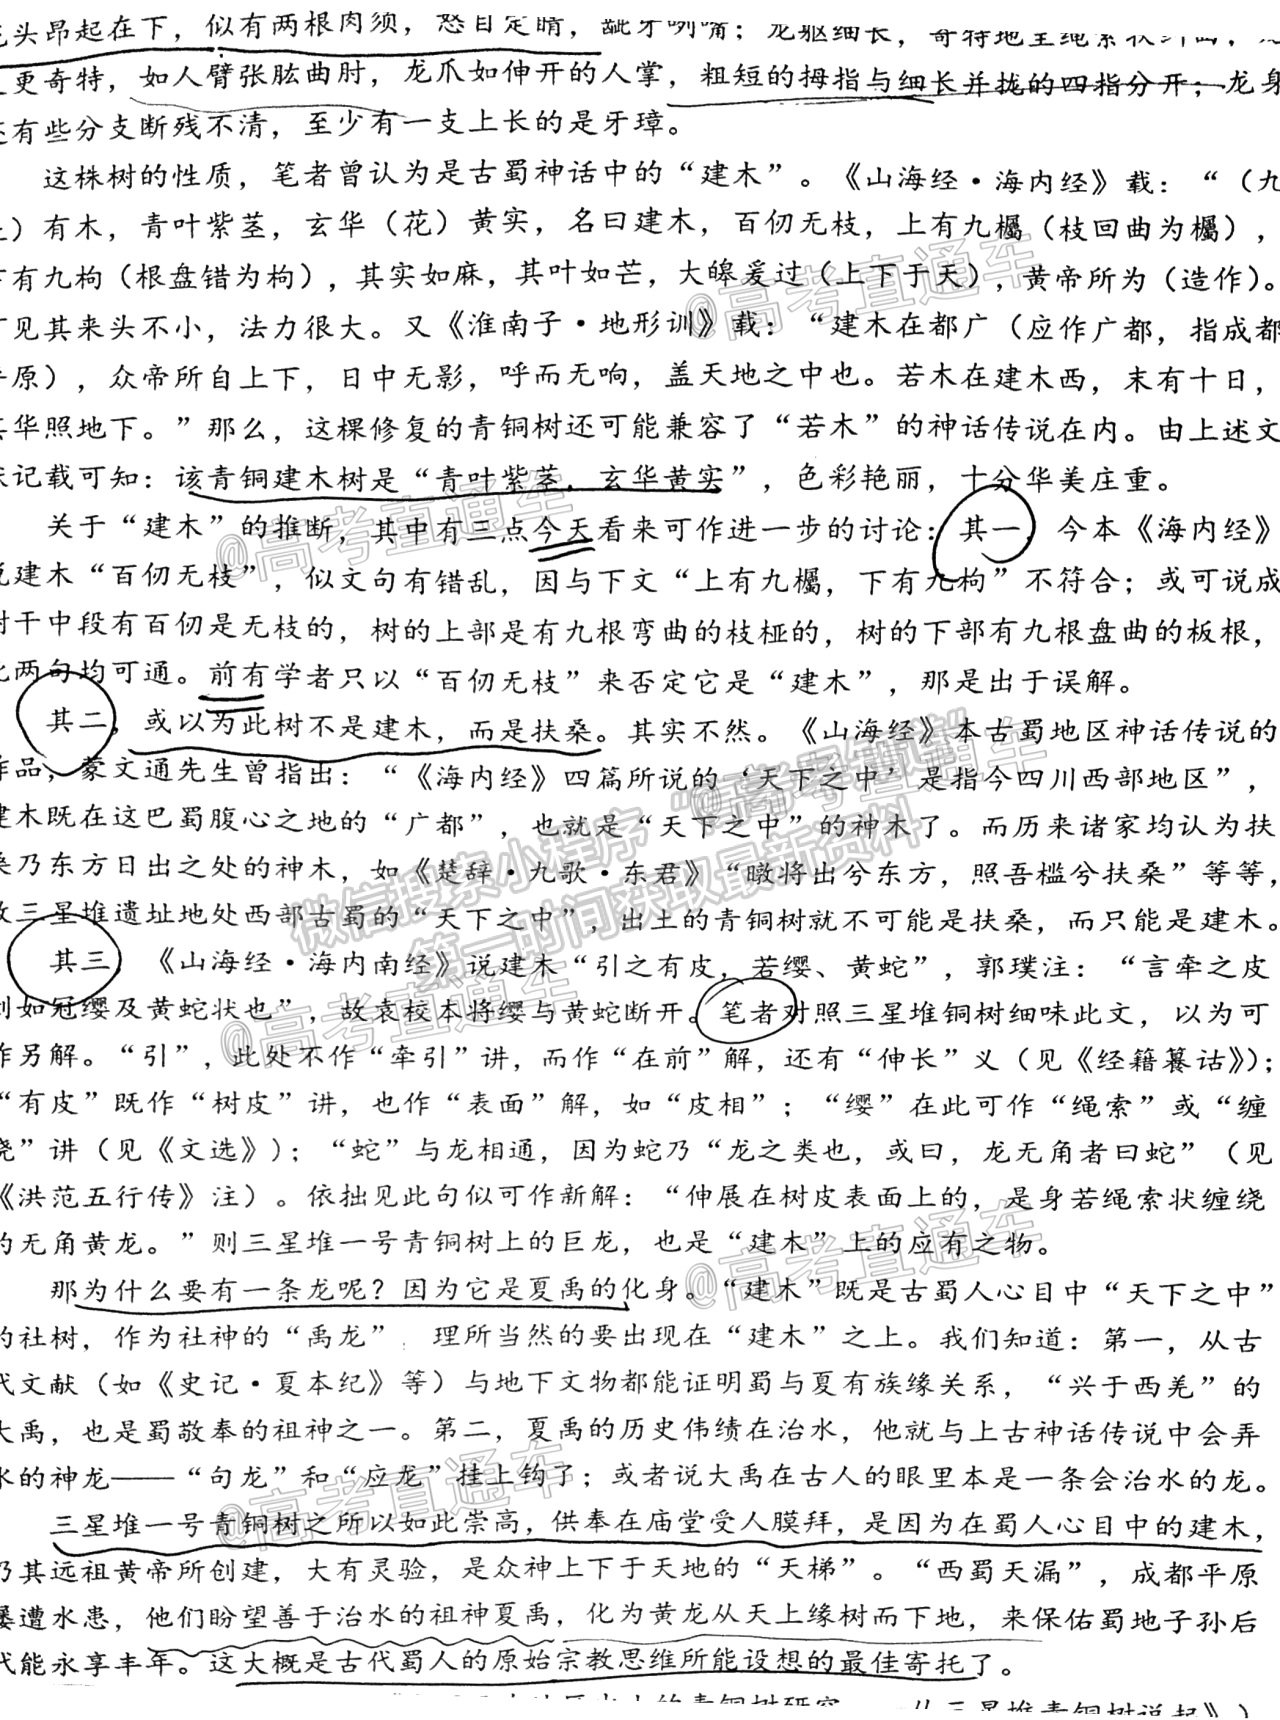 头昂起在下，似有两根肉须，怒目定睛，龇牙咧嘴；龙躯细长，奇特地呈绳索状
更奇特，如人臂张肱曲肘，龙爪如伸开的人掌，粗短的拇指与细长并拢的四指分开；龙身
还有些分支断残不清，至少有一支上长的是牙璋。
这株树的性质，笔者曾认为是古蜀神话中的“建木”。《山海经·海内经》载：“（九
）有木，青叶紫茎，玄华（花）黄实，名曰建木，百仞无枝，上有九欘（枝回曲为欘），
下有九枸（根盘错为枸），其实如麻，其叶如芒，大皞爰过（上下于天），黄帝所为（造作）。
可见其来头不小，法力很大。又《淮南子·地形训》载：“建木在都广（应作广都，指成都
平原），众帝所自上下，日中无影，呼而无响，盖天地之中也。若木在建木西，末有十日，
其华照地下。”那么，这棵修复的青铜树还可能兼容了“若木”的神话传说在内。由上述文
记载可知：该青铜建木树是“青叶紫茎，玄华黄实”，色彩艳丽，十分华美庄重。
关于“建木”的推断，其中有三点今天看来可作进一步的讨论：其一，今本《海内经》
说建木“百仞无枝”，似文句有错乱，因与下文“上有九欘，下有九枸”不符合；或可说成
树干中段有百仞是无枝的，树的上部是有九根弯曲的枝桠的，树的下部有九根盘曲的板根，
此两句均可通。前有学者只以“百仞无枝”来否定它是“建木”，那是出于误解。
其二，或以为此树不是建木，而是扶桑。其实不然。《山海经》本古蜀地区神话传说的
作品，蒙文通先生曾指出：“《海内经》四篇所说的‘天下之中’是指今四川西部地区”，
建木既在这巴蜀腹心之地的“广都”，也就是“天下之中”的神木了。而历来诸家均认为扶
桑乃东方日出之处的神木，如《楚辞·九歌·东君》“暾将出兮东方，照吾槛兮扶桑”等等，
故三星堆遗址地处西部古蜀的“天下之中”，出土的青铜树就不可能是扶桑，而只能是建木。
其三，《山海经·海内南经》说建木“引之有皮，若缨、黄蛇”，郭璞注：“言牵之皮
剥如冠缨及黄蛇状也”，故袁校本将缨与黄蛇断开。笔者对照三星堆铜树细味此文，以为可
作另解。“引”，此处不作“牵引”讲，而作“在前”解，还有“伸长”义（见《经籍籑诂》）；
“有皮”既作“树皮”讲，也作“表面”解，如“皮相”；“缨”在此可作“绳索”或“缠
绕”讲（见《文选》）；“蛇”与龙相通，因为蛇乃“龙之类也，或曰，龙无角者曰蛇”（见
《洪范五行传》注）。依拙见此句似可作新解：“伸展在树皮表面上的，是身若绳索状缠绕
的无角黄龙。”则三星堆一号青铜树上的巨龙，也是“建木”上的应有之物。
那为什么要有一条龙呢？因为它是夏禹的化身。“建木”既是古蜀人心目中“天下之中”
的社树，作为社神的“禹龙”，理所当然的要出现在“建木”之上。我们知道：第一，从古
代文献（如《史记·夏本纪》等）与地下文物都能证明蜀与夏有族缘关系，“兴于西羌”的
大禹，也是蜀敬奉的祖神之一。第二，夏禹的历史伟绩在治水，他就与上古神话传说中会弄
水的神龙——“句龙”和“应龙”挂上钩了；或者说大禹在古人的眼里本是一条会治水的龙。
三星堆一号青铜树之所以如此崇高，供奉在庙堂受人膜拜，是因为在蜀人心目中的建木，
乃其远祖黄帝所创建，大有灵验，是众神上下于天地的“天梯”。“西蜀天漏”，成都平原
屡遭水患，他们盼望善于治水的祖神夏禹，化为黄龙从天上缘树而下地，来保佑蜀地子孙后
代能永享丰年。这大概是古代蜀人的原始宗教思维所能设想的最佳寄托了。
的青铜树研究——从三星堆青铜树说起》）
@高考直通车
@高考直通车
@高考直通车
微信搜索小程序“高考直通车”
第一时间获取最新资料
@高考直通车
@高考直通车
@高考直通车